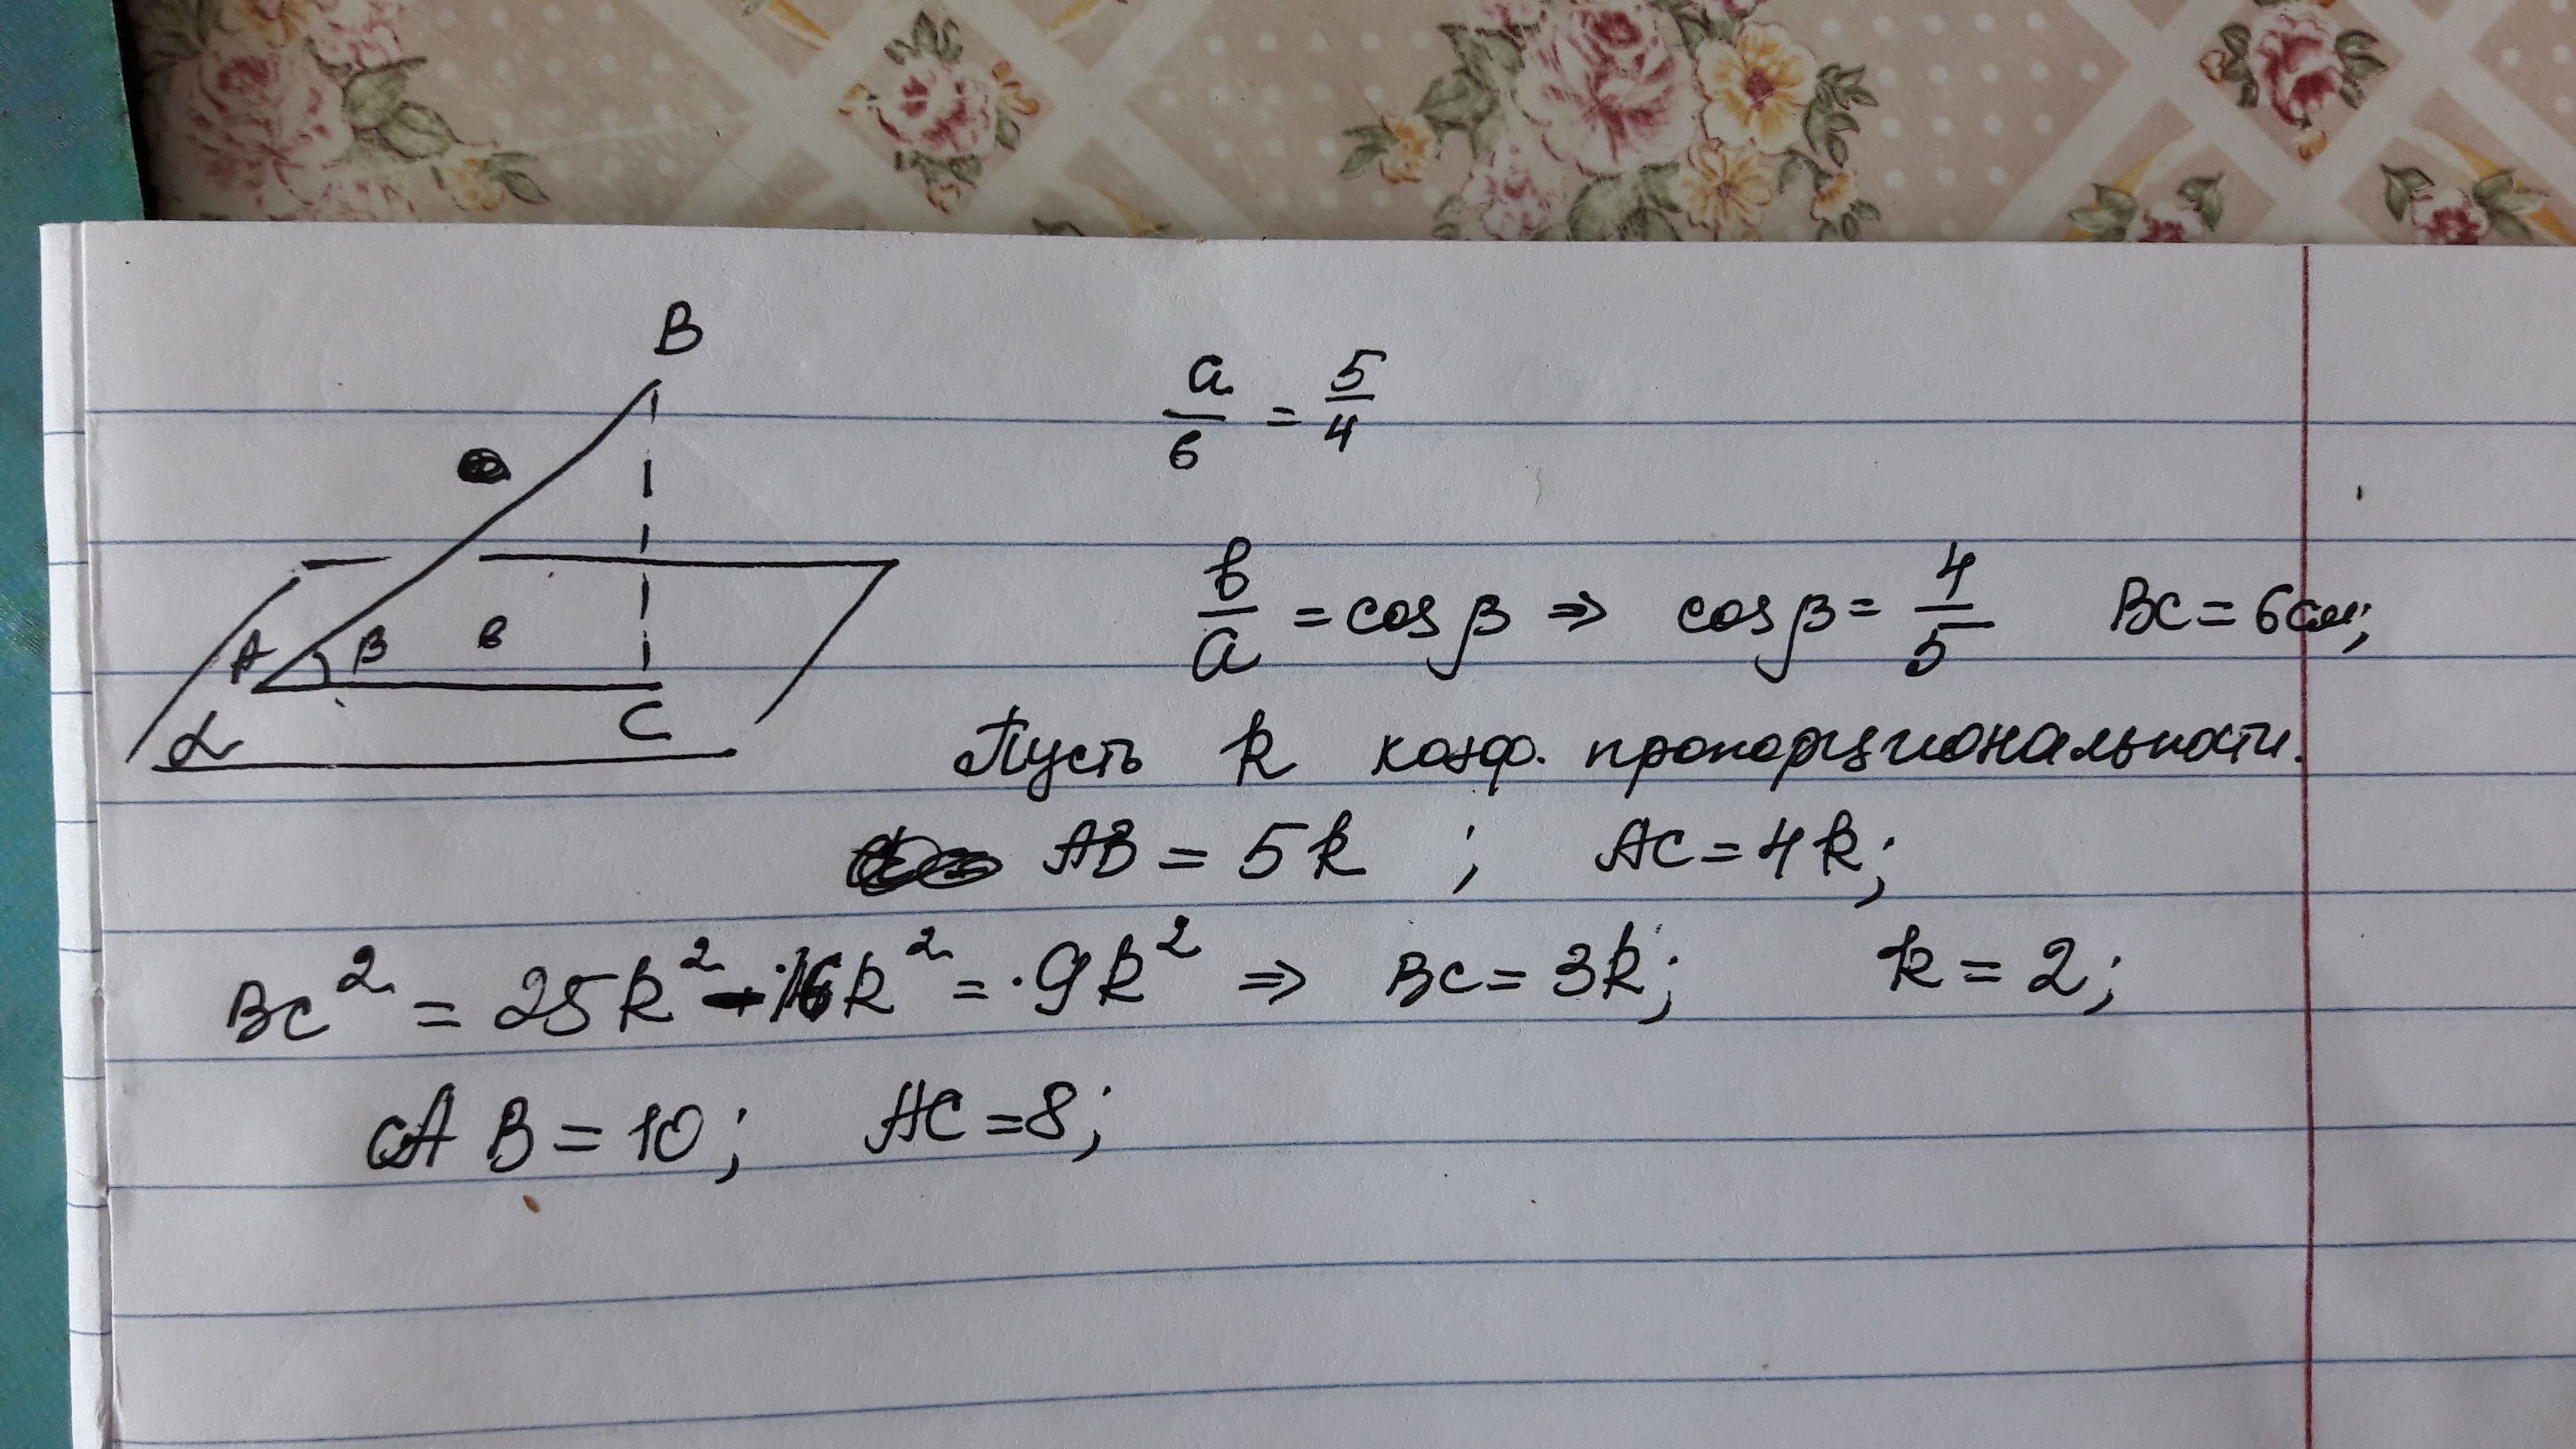 B
A β в
C
α
a/в = 5/4
b/a = cos β ⇒ cos β = 4/5 BC = 6см;
Пусть k коэф. пропорциональности.
AB = 5k ; AC = 4k;
BC² = 25k² - 16k² = 9k² ⇒ BC = 3k; k = 2;
AB = 10; AC = 8;